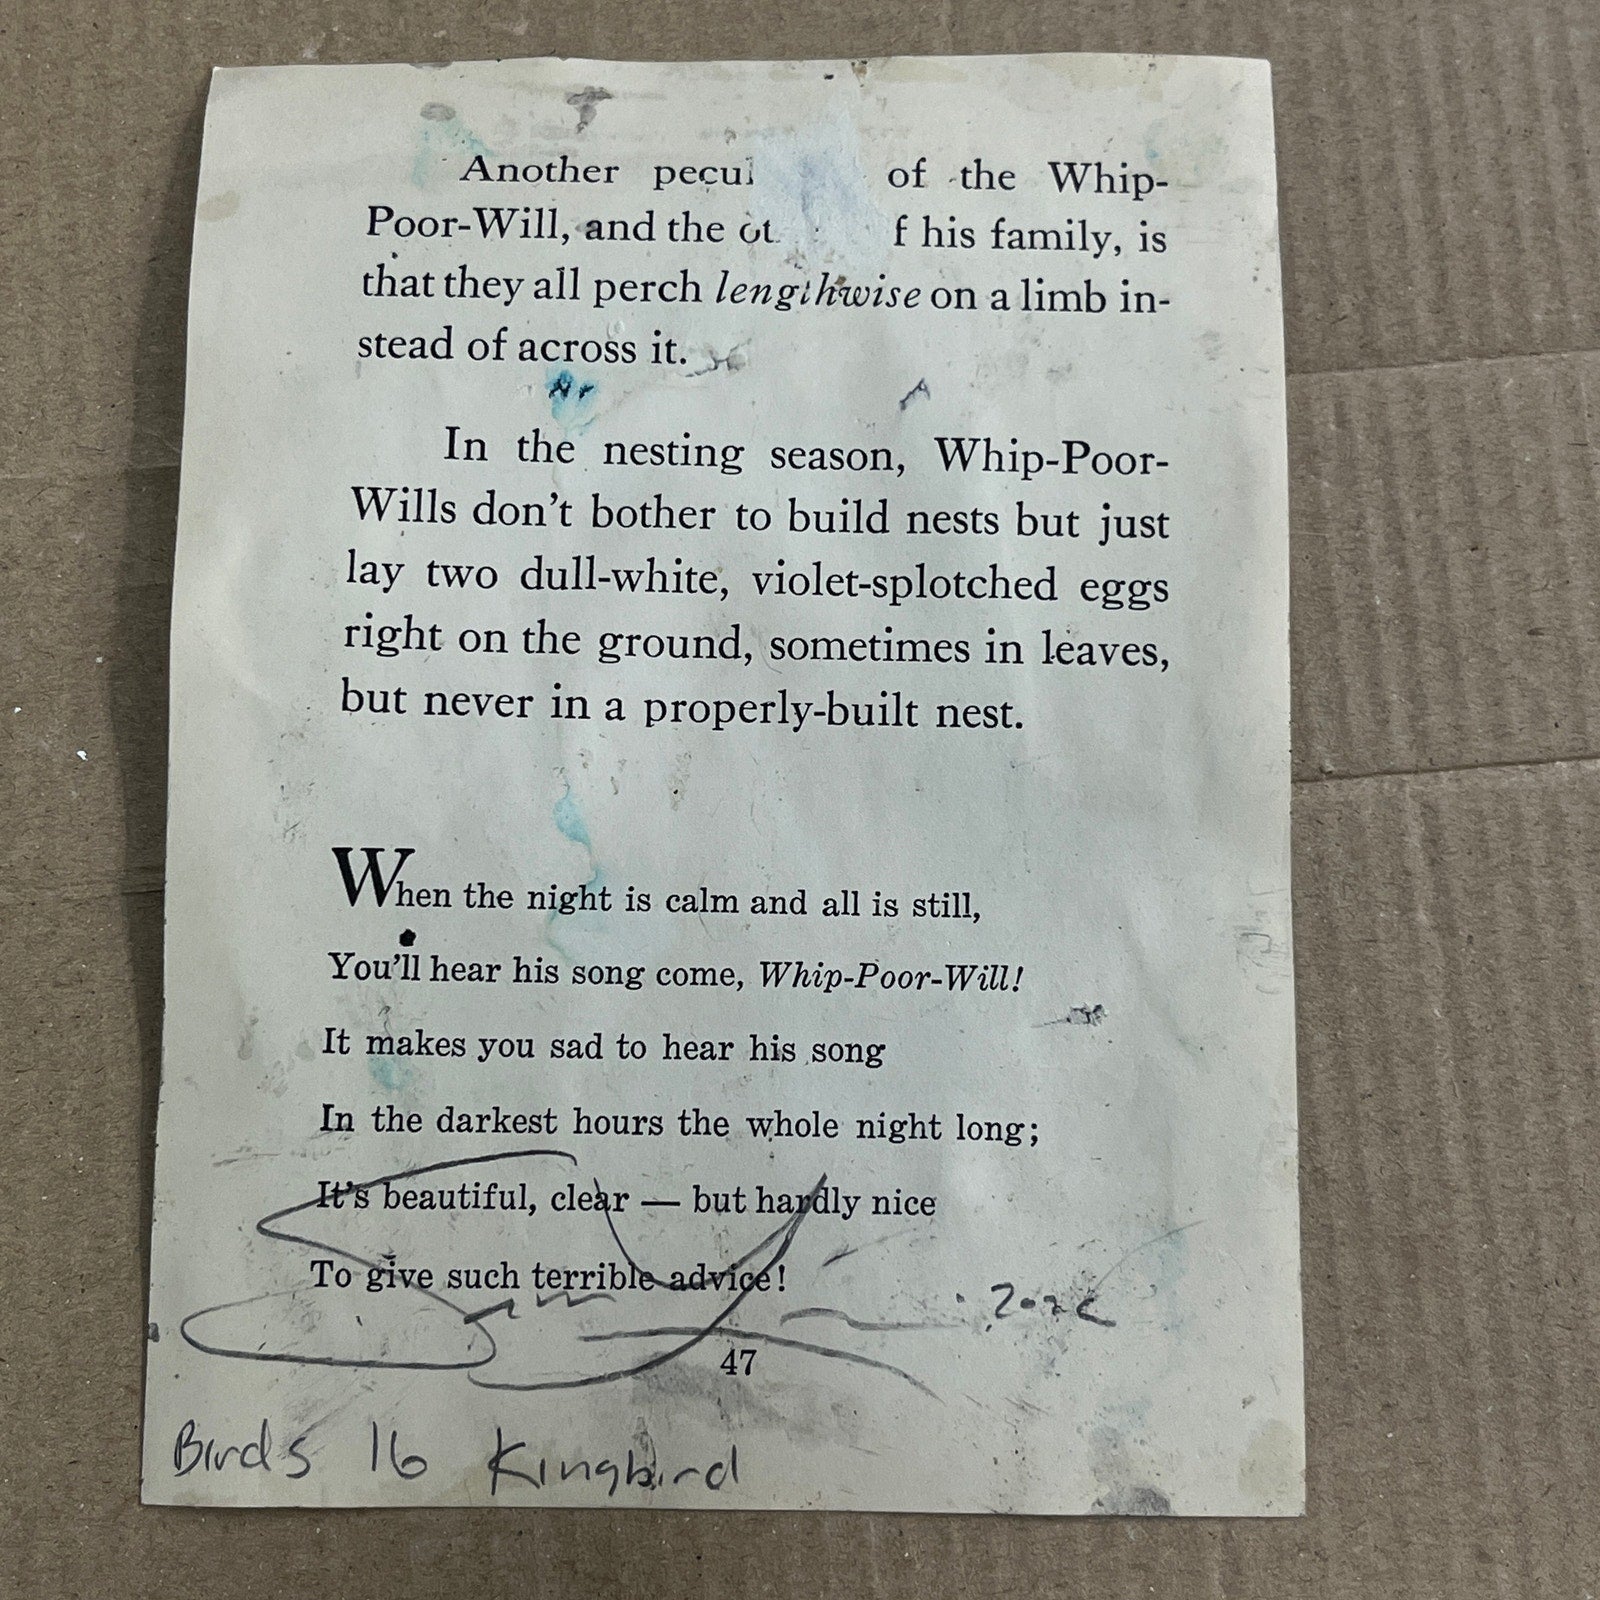 Another of the Whip-
Poor-Will, and the his family, is
that they all perch lengthwise on a limb in-
stead of across it.
In the nesting season, Whip-Poor-
Wills don't bother to build nests but just
lay two dull-white, violet-splotched eggs
right on the ground, sometimes in leaves,
but never in a properly-built nest.
When the night is calm and all is still,
You'll hear his song come, Whip-Poor-Will!
It makes you sad to hear his song
In the darkest hours the whole night long;
It's beautiful, clear — but hardly nice
To give such terrible advice!
47
Birds 16 Kingbird